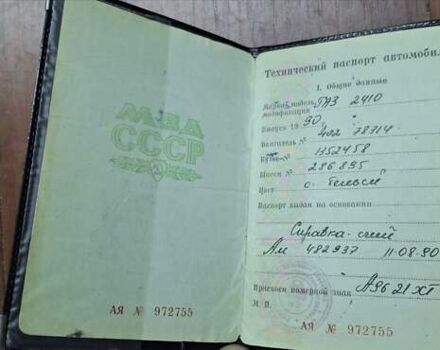 МВД
СССР
АЯ № 972755
Технический паспорт автомобил
I. Общие данные
Марка, модель, модификация ГАЗ 2410
Выпуск 19 90.
Двигатель № 402 78314
Кузов № 1352458
Шасси № 286895
Цвет
Паспорт выдан на основании
Справка-счет
АМ 482937 11-08-90
Присвоен номерной знак А9621ХТ
М. П.
АЯ № 972755